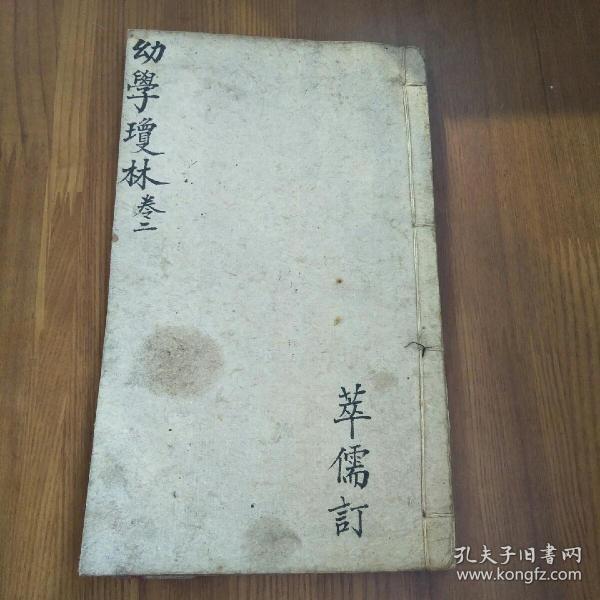 幼學瓊林 卷二
萃儒訂
孔夫子旧书网
www.kongfz.com